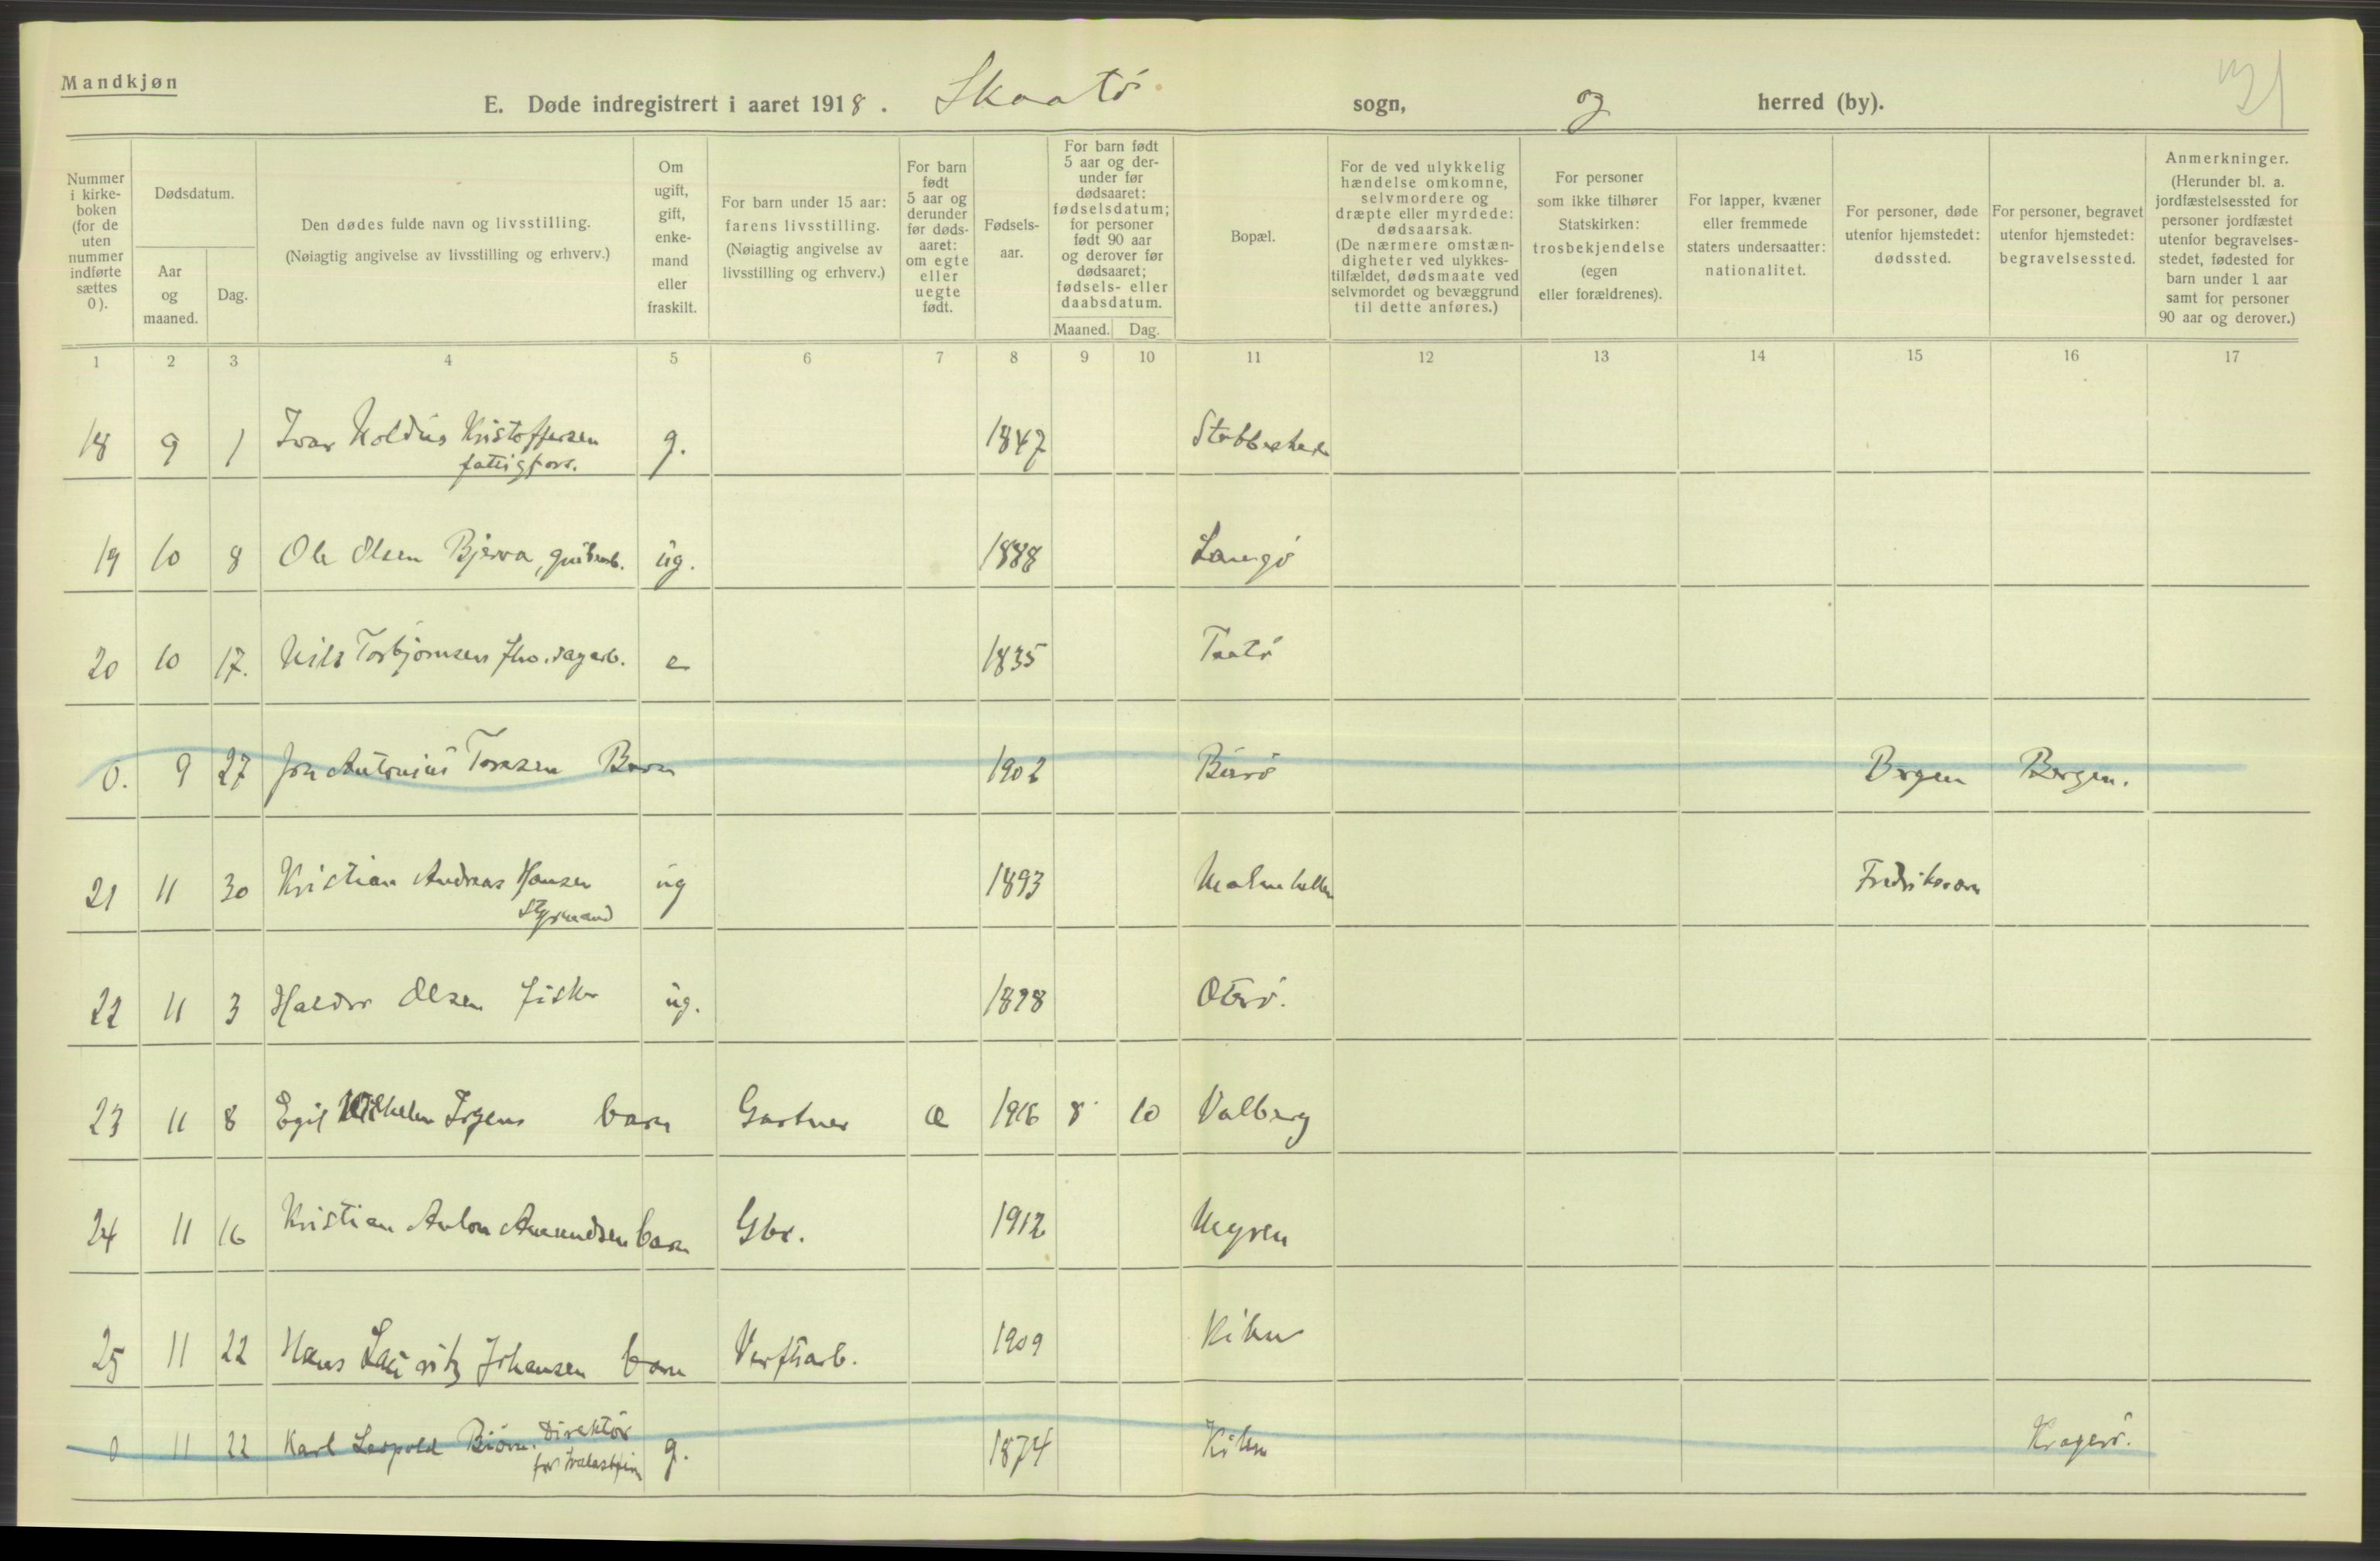 Mandkjøn
E. Døde indregistrert i aaret 1918. Skaatö sogn, og herred (by).
Nummer i kirke-boken (for de uten nummer indførte sættes 0).
Dødsdatum.
Aar og maaned.
Dag.
Den dødes fulde navn og livsstilling.
(Nøiagtig angivelse av livsstilling og erhverv.)
Om ugift, gift, enke-mand eller fraskilt.
For barn under 15 aar: farens livsstilling. (Nøiagtig angivelse av livsstilling og erhverv.)
For barn født 5 aar og derunder før døds-aaret: om egte eller uegte født.
Fødsels-aar.
For barn født 5 aar og der-under før dødsaaret: fødselsdatum; for personer født 90 aar og derover før dødsaaret; fødsels- eller daabsdatum.
Maaned. Dag.
Bopæl.
For de ved ulykkelig hændelse omkomne, selvmordere og dræpte eller myrdede: dødsaarsak. (De nærmere omstæn-digheter ved ulykkes-tilfældet, dødsmaate ved selvmordet og bevæggrund til dette anføres.)
For personer som ikke tilhører Statskirken: trosbekjendelse (egen eller forældrenes).
For lapper, kvæner eller fremmede staters undersaatter: nationalitet.
For personer, døde utenfor hjemstedet: dødssted.
For personer, begravet utenfor hjemstedet: begravelsessted.
Anmerkninger. (Herunder bl. a. jordfæstelsessted for personer jordfæstet utenfor begravelses-stedet, fødested for barn under 1 aar samt for personer 90 aar og derover.)
1 2 3 4 5 6 7 8 9 10 11 12 13 14 15 16 17
18 9 1 Ivar Kristoffersen g. 1847
fattigfors.
19 10 8 Ole Olsen Bjerva, grubearb. ug. 1888 Langö
20 10 17. Nils Torbjörnsen fhv. sagarb. e 1835 Taatö
0. 9 27 Joh Antonius Torasen Barn 1902 Börö Bergen Bergen.
21 11 30 Kristian Andreas Hansen ug 1893 Fredriksværn
Styrmand
22 11 3 Haldor Olsen fisker ug. 1898 Oterö.
23 11 8 Egil Vilhelm Irgens barn Gartner æ 1916 8 10 Valberg
24 11 16 Kristian Anton Amundsen barn Gbr. 1912 Myren
25 11 22 Hans Lauritz Johansen barn Verftsarb. 1909 Kilen
0 11 22 Karl Leopold Biörn. Direktör g. 1874 Kilen Kragerö.